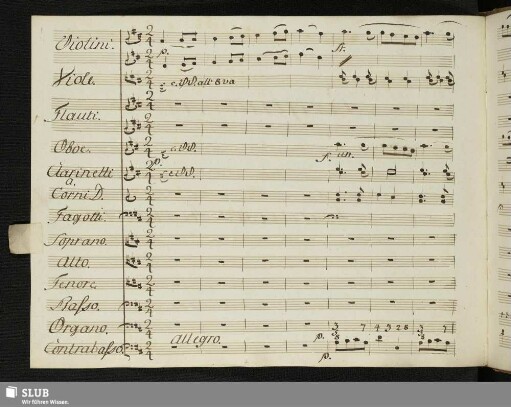 Violini.
Viole.
Flauti.
Oboe.
Clarinetti
a.
Corni D.
Fagotti.
Soprano.
Alto.
Tenore.
Basso.
Organo.
Contrabasso.
Allegro.
p.
p.
SLUB
Wir führen Wissen.